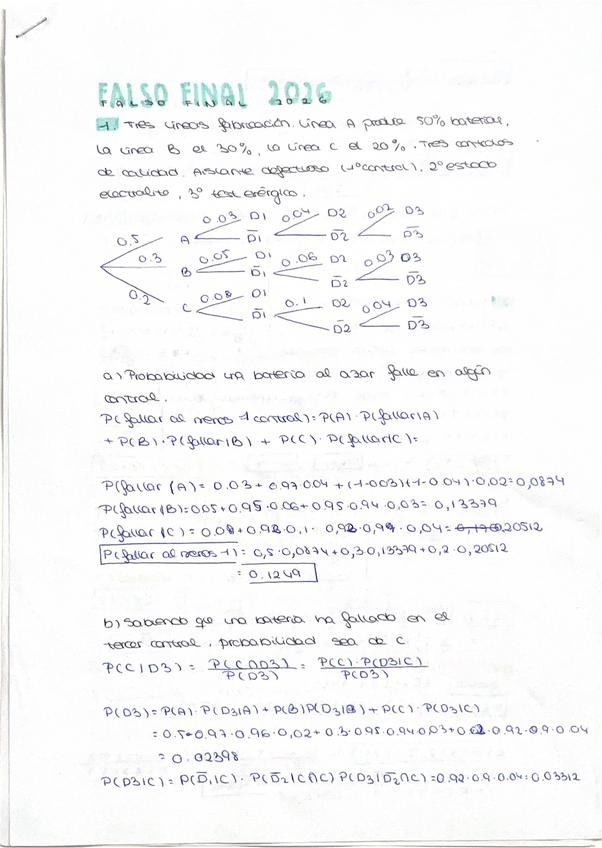 FALSO FINAL 2026
FALSO FINAL 2026
1. Tres líneas fabricación. Línea A produce 50% baterías,
la línea B el 30%, la línea C el 20%. Tres controles
de calidad. Aislante defectuoso (1º control), 2º estado
electrolito, 3º test enérgico.
0.5 A 0.03 D1 0.04 D2 0.02 D3
D̄1 D̄2 D̄3
0.3 B 0.05 D1 0.06 D2 0.03 D3
D̄1 D̄2 D̄3
0.2 C 0.08 D1 0.1 D2 0.04 D3
D̄1 D̄2 D̄3
a) Probabilidad una batería al azar falle en algún
control.
P(fallar al menos 1 control) = P(A) · P(fallar|A)
+ P(B) · P(fallar|B) + P(C) · P(fallar|C) =
P(fallar|A) = 0.03 + 0.97·0.04 + (1-0.03)(1-0.04)·0.02 = 0,0874
P(fallar|B) = 0.05 + 0.95·0.06 + 0.95·0.94·0.03 = 0,13379
P(fallar|C) = 0.08 + 0.92·0,1· 0,92·0,9·0,04 = 0,20512
P(fallar al menos 1) = 0,5·0,0874 + 0,3·0,13379 + 0,2·0,20512
= 0.1249
b) Sabiendo que una batería ha fallado en el
tercer control, probabilidad sea de C
P(C|D3) = P(C∩D3) / P(D3) = P(C)·P(D3|C) / P(D3)
P(D3) = P(A)·P(D3|A) + P(B)P(D3|B) + P(C)·P(D3|C)
= 0.5·0.97·0.96·0,02 + 0.3·0.95·0.94·0.03 + 0.2·0.92·0.9·0.04
= 0.02398
P(D3|C) = P(D̄1|C) · P(D̄2|C∩C) P(D3|D̄2∩C) = 0.92·0.9·0.04 = 0.03312